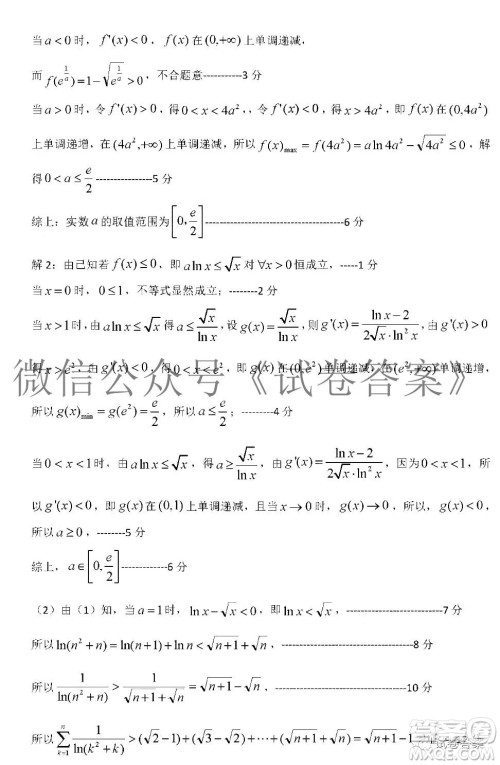 当 a<0 时， f'(x)<0 ， f(x) 在 (0,+∞) 上单调递减，
而 f(e^{1/a})=1-√(e^{1/a})>0 ，不合题意-----------3 分
当 a>0 时，令 f'(x)>0 ，得 0<x<4a² ，，令 f'(x)<0 ，得 x>4a² ，即 f(x) 在 (0,4a²)
上单调递增，在 (4a²,+∞) 上单调递减，所以 f(x)_max=f(4a²)=aln4a²-√(4a²)≤0 ，解
得 0<a≤e/2 ----------------5 分
综上：实数 a 的取值范围为 [0,e/2]----------------------------------------6 分
解 2：由己知若 f(x)≤0 ，即 alnx≤√x 对 ∀x>0 恒成立，-----1 分
当 x=0 时， 0≤1，不等式显然成立；--------2 分
当 x>1 时，由 alnx≤√x 得 a≤√x/lnx ，设 g(x)=√x/lnx ，则 g'(x)=(lnx-2)/(2√x·ln²x) ，由 g'(x)>0
得 x>e² ，由 g'(x)<0 ，得 0<x<e² ，即 g(x) 在 (0,e²) 单调递减，在 (e²,+∞) 单调递增，
微信公众号《试卷答案》
所以 g(x)_min=g(e²)=e/2 ，所以 a≤e/2 ；--------4 分
当 0<x<1 时，由 alnx≤√x ，得 a≥√x/lnx ，由 g'(x)=(lnx-2)/(2√x·ln²x) ，因为 0<x<1 ，所
以 g'(x)<0 ，即 g(x) 在 (0,1) 上单调递减，且当 x→0 时， g(x)→0 ，所以， g(x)<0 ，
所以 a≥0 ，--------5 分
综上， a∈[0,e/2]-------------6 分
（2）由（1）知，当 a=1 时， lnx-√x<0 ，即 lnx<√x ，----------------------7 分
所以 ln(n²+n)=ln(n+1)+lnn<√(n+1)+√n ，------------------------------8 分
所以 1/ln(n²+n)>1/(√(n+1)+√n)=√(n+1)-√n ，----------------------------10 分
所以 ∑_{k=1}^{n} 1/ln(k²+k)>(√2-1)+(√3-√2)+⋯+(√(n+1)-√n)=√(n+1)-1
试卷答案